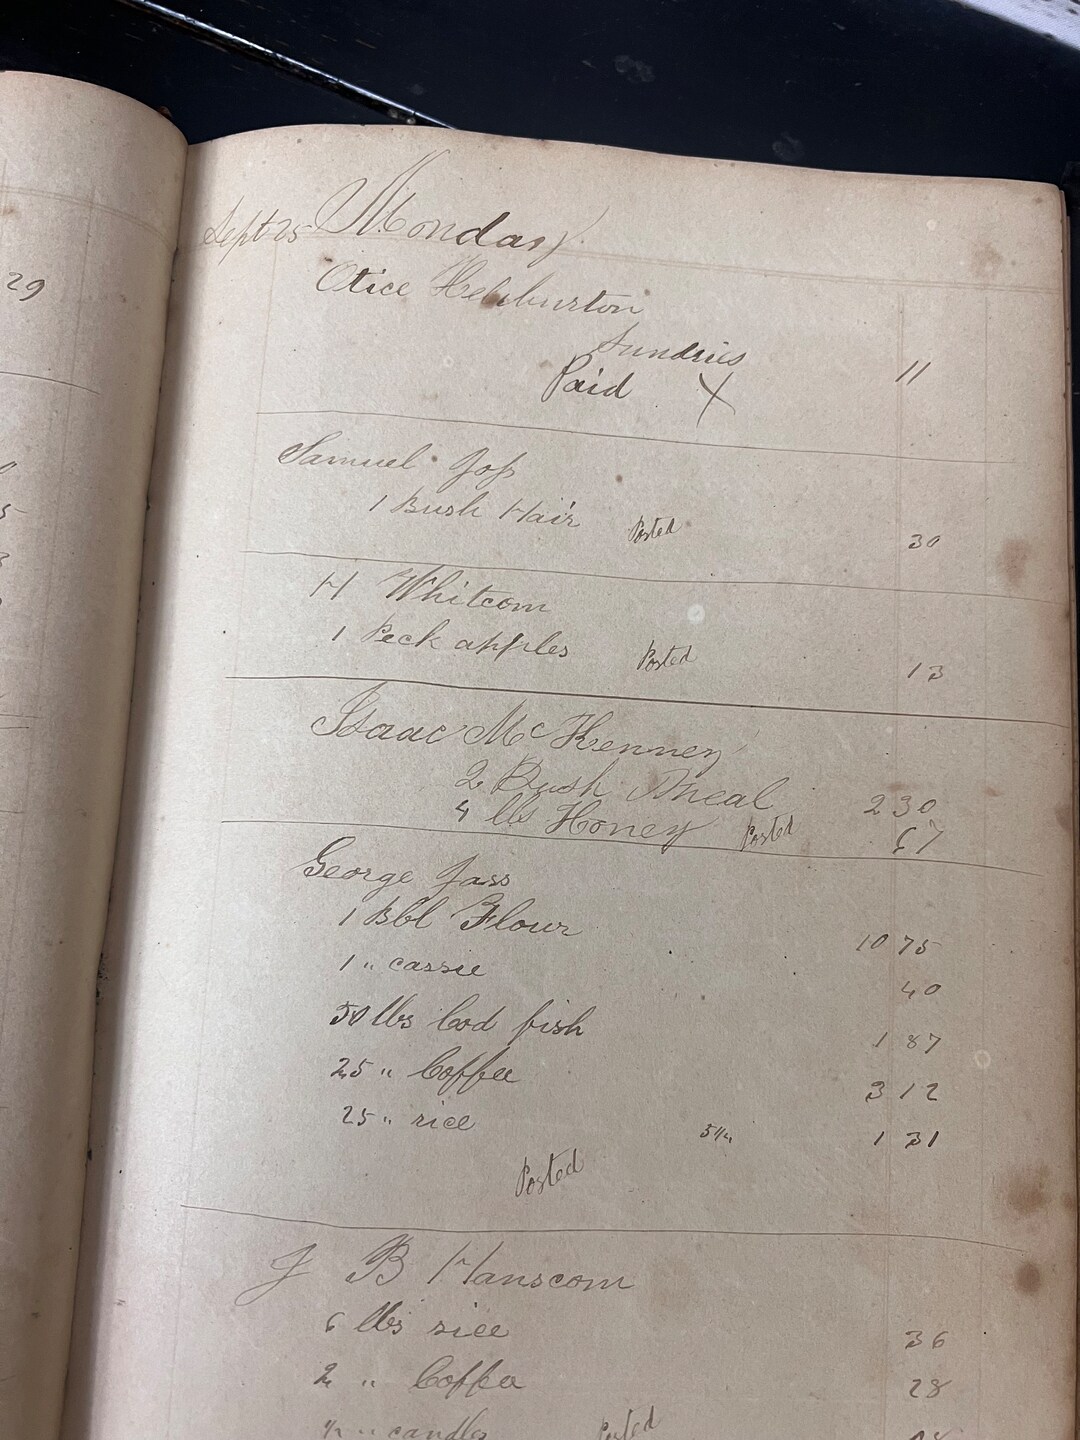 29
Sept 25 Monday
Otice
Sundries 11
Paid X
Samuel
1 Bush Hair Posted 30
H Whitcom
1 Peck apples Posted 13
Isaac McKenney
2 Bush Meal 2 30
4 lbs Honey Posted 67
George
1 Bbl Flour 10 75
1 " cassie 40
50 lbs Cod fish 1 87
25 " Coffee 3 12
25 " rice 5 1/4 1 31
Posted
J B Hanscom
6 lbs rice 36
2 " Coffee 28
1/2 " candles Posted